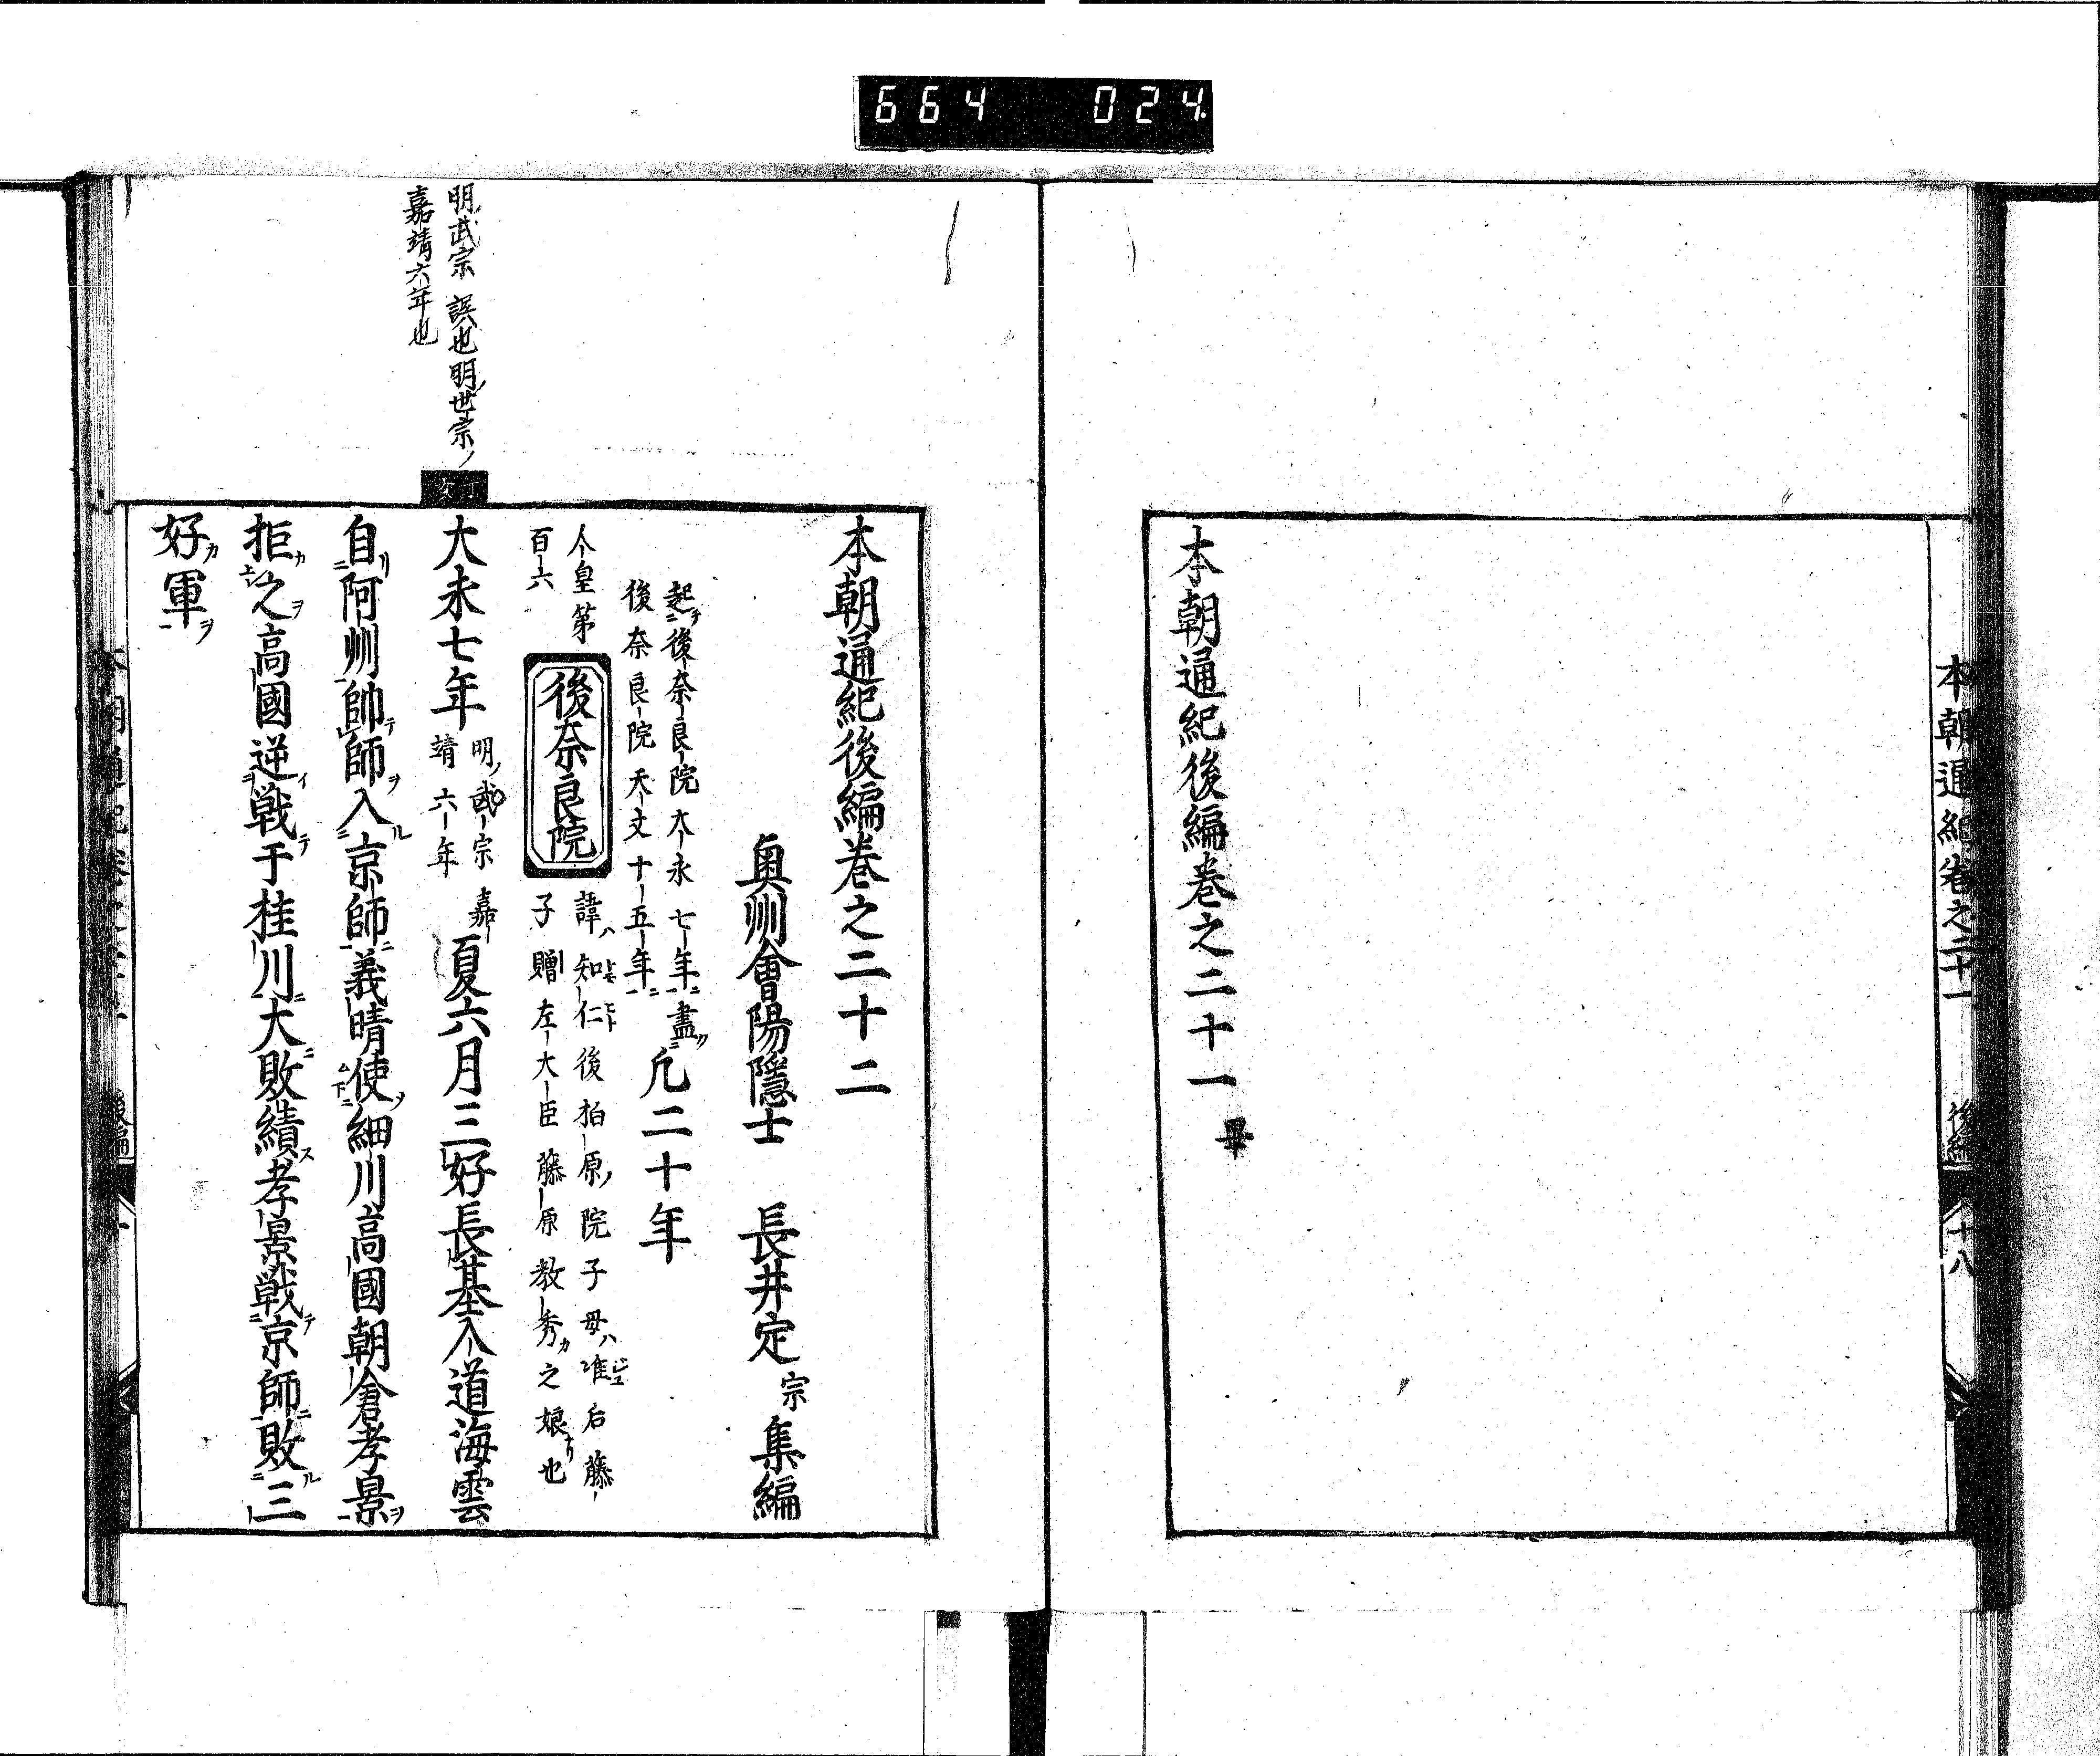 664 024
本朝通紀卷之二十一 後編 十八
本朝通紀後編卷之二十一 畢
本朝通紀後編卷之二十二
奧州會陽隱士 長井定宗集編
起後奈良院大永七年盡
後奈良院天文十五年
凡二十年
人皇第
百六
後奈良院
諱ハ知仁後柏原ノ院子母ハ准后藤
子贈左大臣藤原教秀カ之娘ナリ也
明武宗誤也明世宗ノ
嘉靖六年也
大末七年
明ノ武宗嘉
靖六年
夏六月三好長基入道海雲
自リ阿州帥テ師ヲ入ル京師ニ義晴使ム細川高國朝倉孝景ヲ
拒カ之ヲ高國逆イ戰テ于桂川ニ大ニ敗績ス孝景戰テ京師ニ敗ル三
好カ軍ヲ